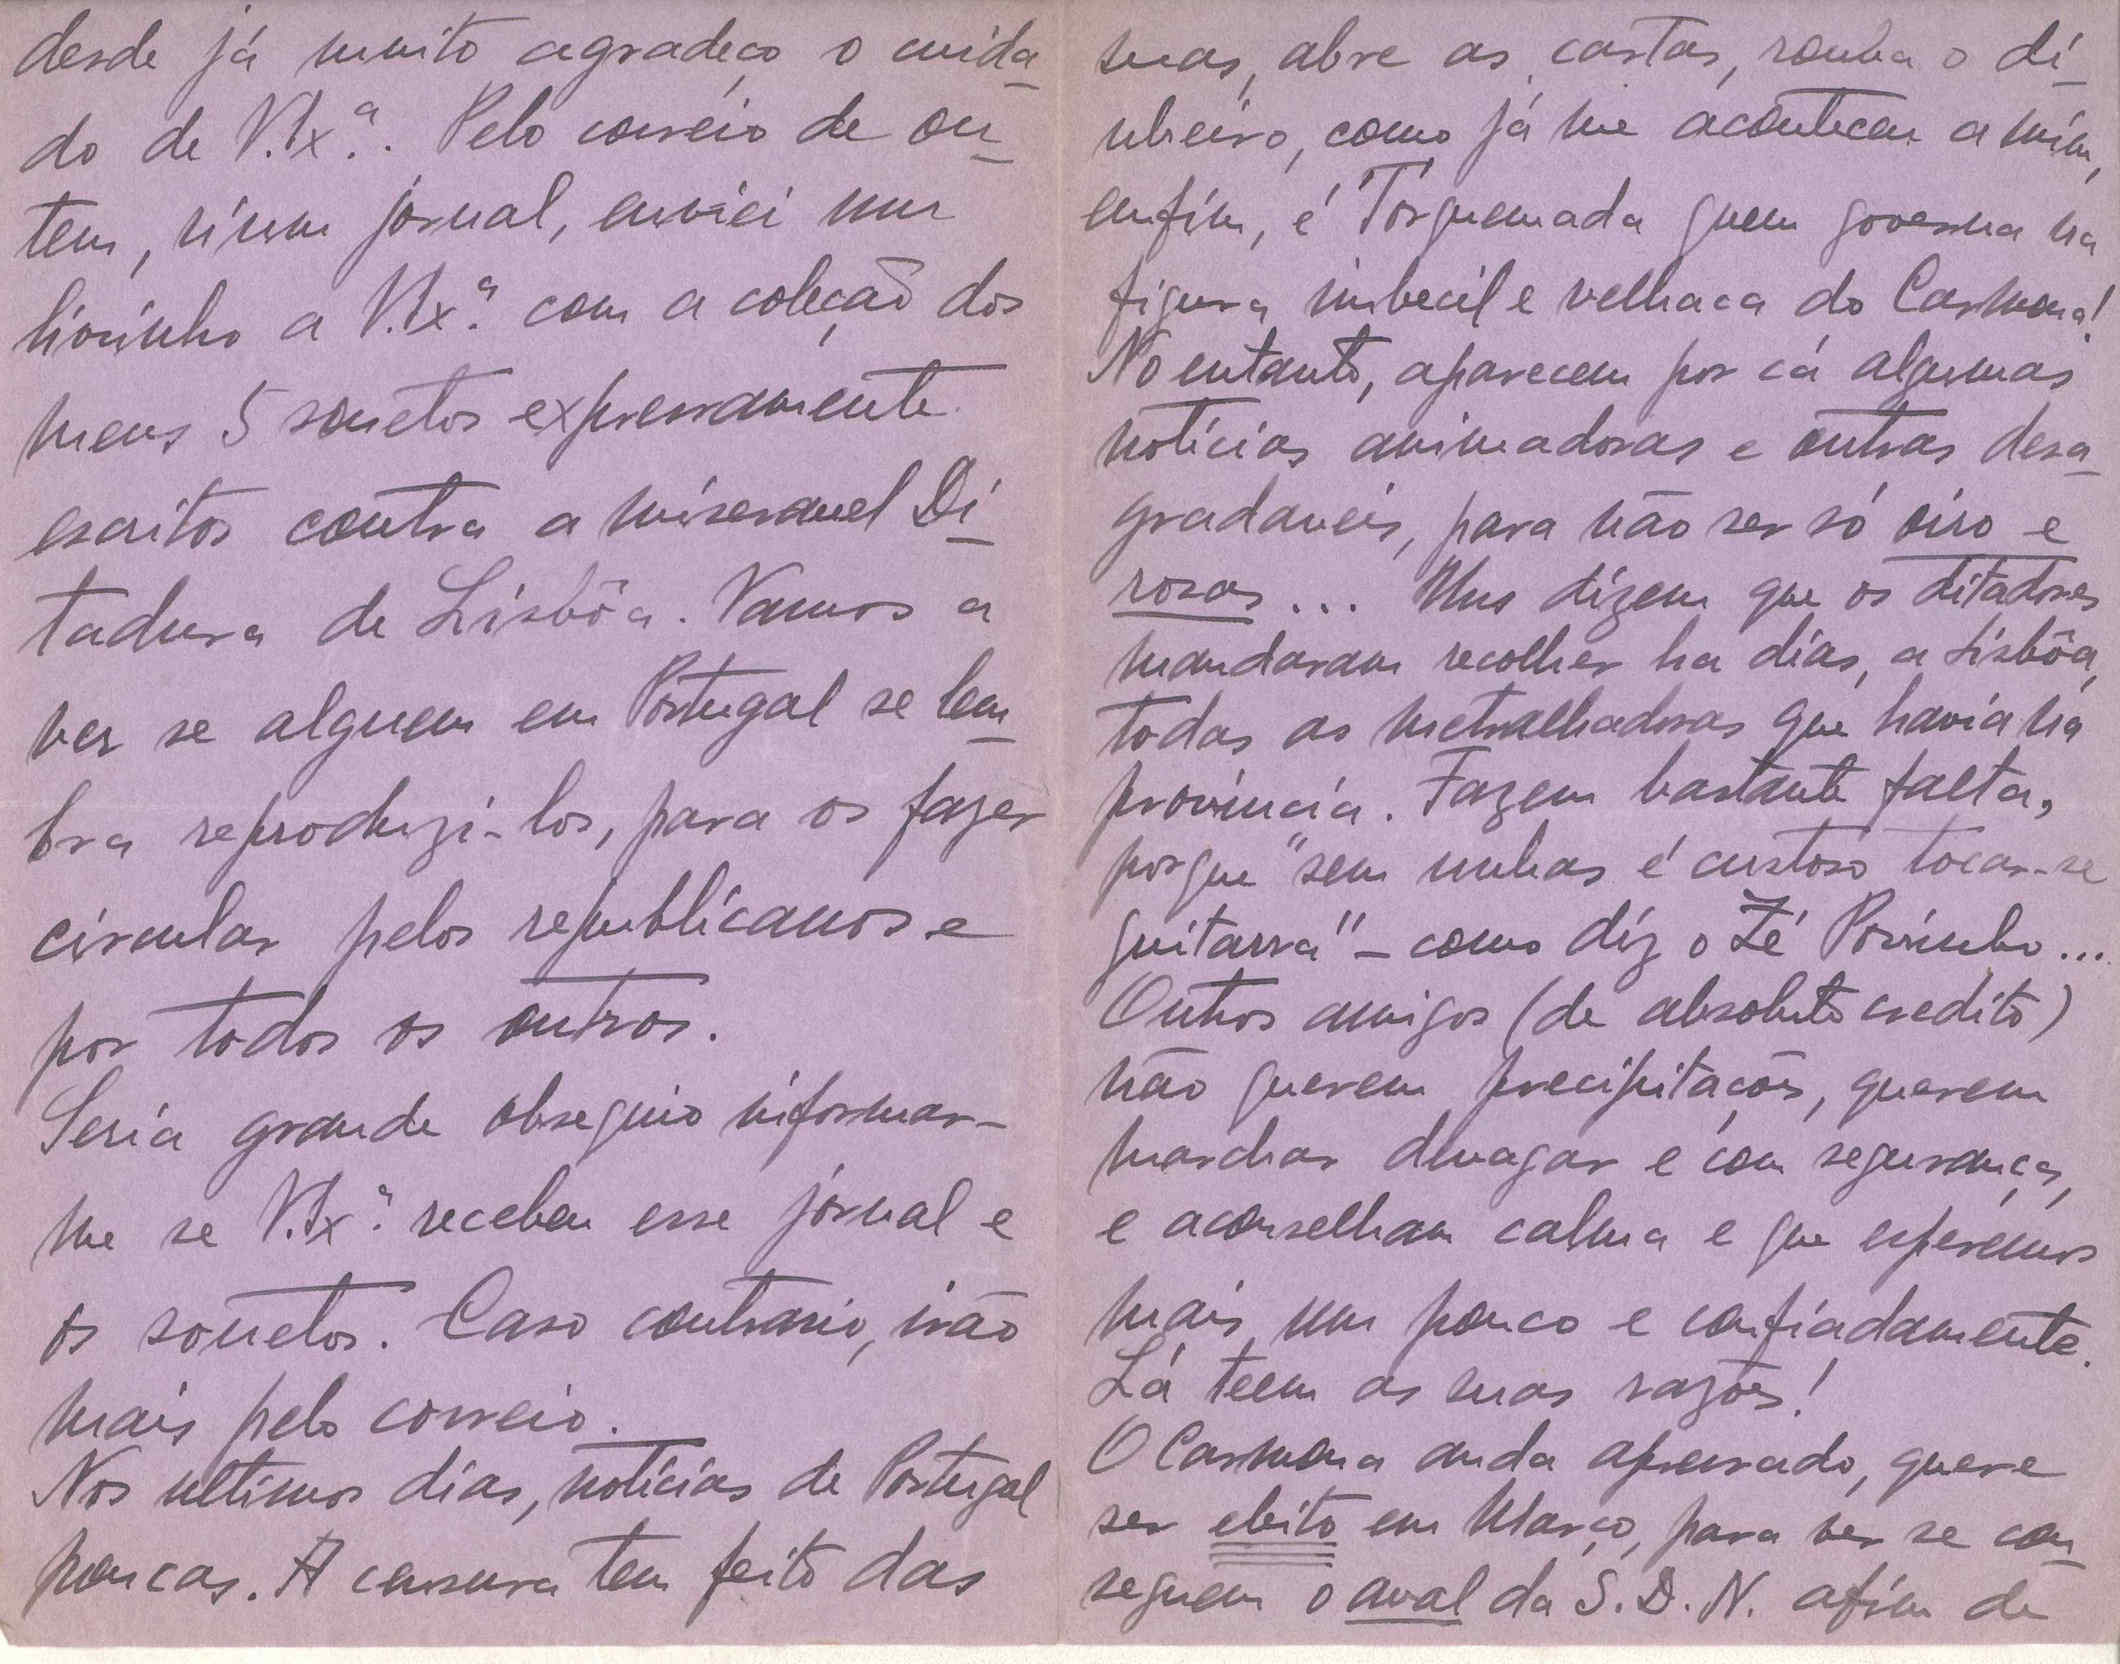 desde já muito agradeço o cuida-
do de V. Ex.ª. Pelo correio de on-
tem, n'um jornal, enviei um
livrinho a V. Ex.ª com a coleção dos
meus 5 sonetos expressamente
escritos contra a miseravel Di-
tadura de Lisbôa. Vamos a
ver se alguem em Portugal se lem-
bra reproduzi-los, para os fazer
circular pelos republicanos e
por todos os outros.
Seria grande obsequio informar-
me se V. Ex.ª recebeu esse jornal e
os sonetos. Caso contrario, irão
mais pelo correio.
Nos ultimos dias, notícias de Portugal
poucas. A censura tem feito das
suas, abre as cartas, rouba o di-
nheiro, como já me aconteceu a mim,
enfim, é Torquemada quem governa na
figura imbecil e velhaca do Carmona!
No entanto, aparecem por cá algumas
notícias animadoras e outras desa-
gradaveis, para não ser só oiro e
rosas... Uns dizem que os ditadores
mandaram recolher ha dias, a Lisbôa,
todas as metralhadoras que havia na
província. Fazem bastante falta,
porque "sem unhas é custoso tocar-se
guitarra" - como diz o Zé Povinho...
Outros amigos (de absoluto credito)
não querem precipitações, querem
marchar devagar e com segurança,
e aconselham calma e que esperemos
mais um pouco e confiadamente.
Lá teem as suas razões!
O Carmona anda apressado, quere
ser eleito em Março, para ver se con-
seguem o aval da S. D. N. afim de